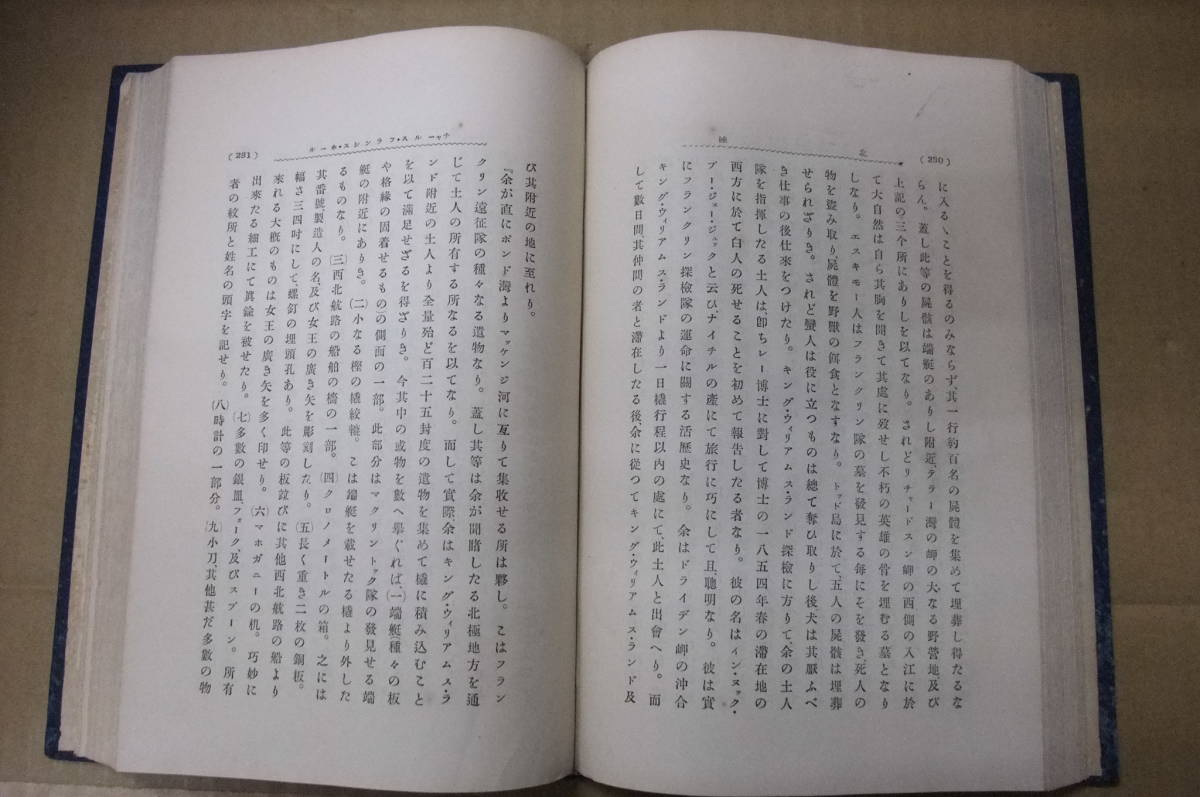 (230)
北極
に入るゝことを得るのみならず、其一行約百名の屍體を集めて埋葬し得たるな
らん。蓋し此等の屍骸は端艇のありし附近、テラー灣の岬の大なる野營地、及び
上記の三個所にありしを以てなり。されどリチャードスン岬の西側の入江に於
て大自然は自ら其胸を開きて其處に歿せし不朽の英雄の骨を埋むる墓となり
しなり。エスキモー人はフランクリン隊の墓を發見する每にそを發き死人の
物を盜み取り、屍體を野獸の餌食となすなり。トッド島に於て、五人の屍骸は埋葬
せられざりき。されど蠻人は役に立つものは總て奪ひ取りし後犬は其厭ふべ
き仕事の後仕來をつけたり。キング・ウィリアムス・ランド探檢に方りて、余の土人
隊を指揮したる土人は、卽ちレー博士に對して博士の一八五四年春の滯在地の
西方に於て白人の死せることを初めて報告したる者なり。彼の名はイン・ヌック・
プー・ジェー・ジュックと云ひ、ナイチルの產にて旅行に巧にして且、聰明なり。彼は實
にフランクリン探檢隊の運命に關する活歷史なり。余はドライデン岬の沖合
キング・ウィリアムス・ランドより一日橇行程以內の處にて、此土人と出會へり。而
して數日間、其仲間の者と滯在したる後、余に從つてキング・ウィリアムス・ランド及
チャールス・フランシス・ホール
(231)
び其附近の地に至れり。
『余が直にポンド海よりマッケンジ河に亙りて集收せる所は夥し。こはフラン
クリン遠征隊の種々なる遺物なり。蓋し其等は余が開睹したる北極地方を通
じて土人の所有する所なるを以てなり。而して實際余はキング・ウィリアムス・ラ
ンド附近の土人より全量殆ど百二十五封度の遺物を集めて橇に積み込むこと
を以て滿足せざるを得ざりき。今其中の或物を數へ擧ぐれば、(一)端艇(種々の板
や格緣の固着せるもの)の側面の一部。此部分はマクリントック隊の發見せる端
艇の附近にありき。(二)小なる樫の橇絞轆。こは端艇を載せたる橇より外した
るものなり。(三)西北航路の船舶の檣の一部。(四)クロノメートルの箱。之には
其番號、製造人の名、及び女王の廣き矢を彫刻したり。(五)長く重き二枚の銅板。
幅さ三四吋にして、螺釘の埋頭孔あり。此等の板竝びに其他西北航路の船より
來れる大槪のものは女王の廣き矢を多く印せり。(六)マホガニーの机。巧妙に
出來たる細工にて眞鍮を被せたり。(七)多數の銀皿、フォーク、及びスプーン。所有
者の紋所と姓名の頭字を記せり。(八)時計の一部分。(九)小刀、其他甚だ多數の物